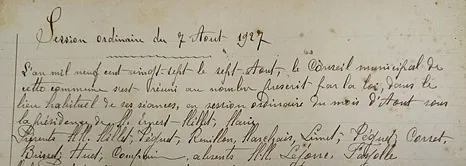 Session ordinaire du 7 Aout 1927
L'an mil neuf cent vingt-sept le sept Aout, le Conseil municipal de
cette commune s'est réuni au nombre prescrit par la loi, dans le
lieu habituel de ses séances, en session ordinaire du mois d'Aout sous
la présidence de M. Ernest Hellet, Maire
Présents M.M. Péquet, Renillon, Marchais, Linet, Péquet, Corset,
Brisset, Huet, absents M.M. Lefour,